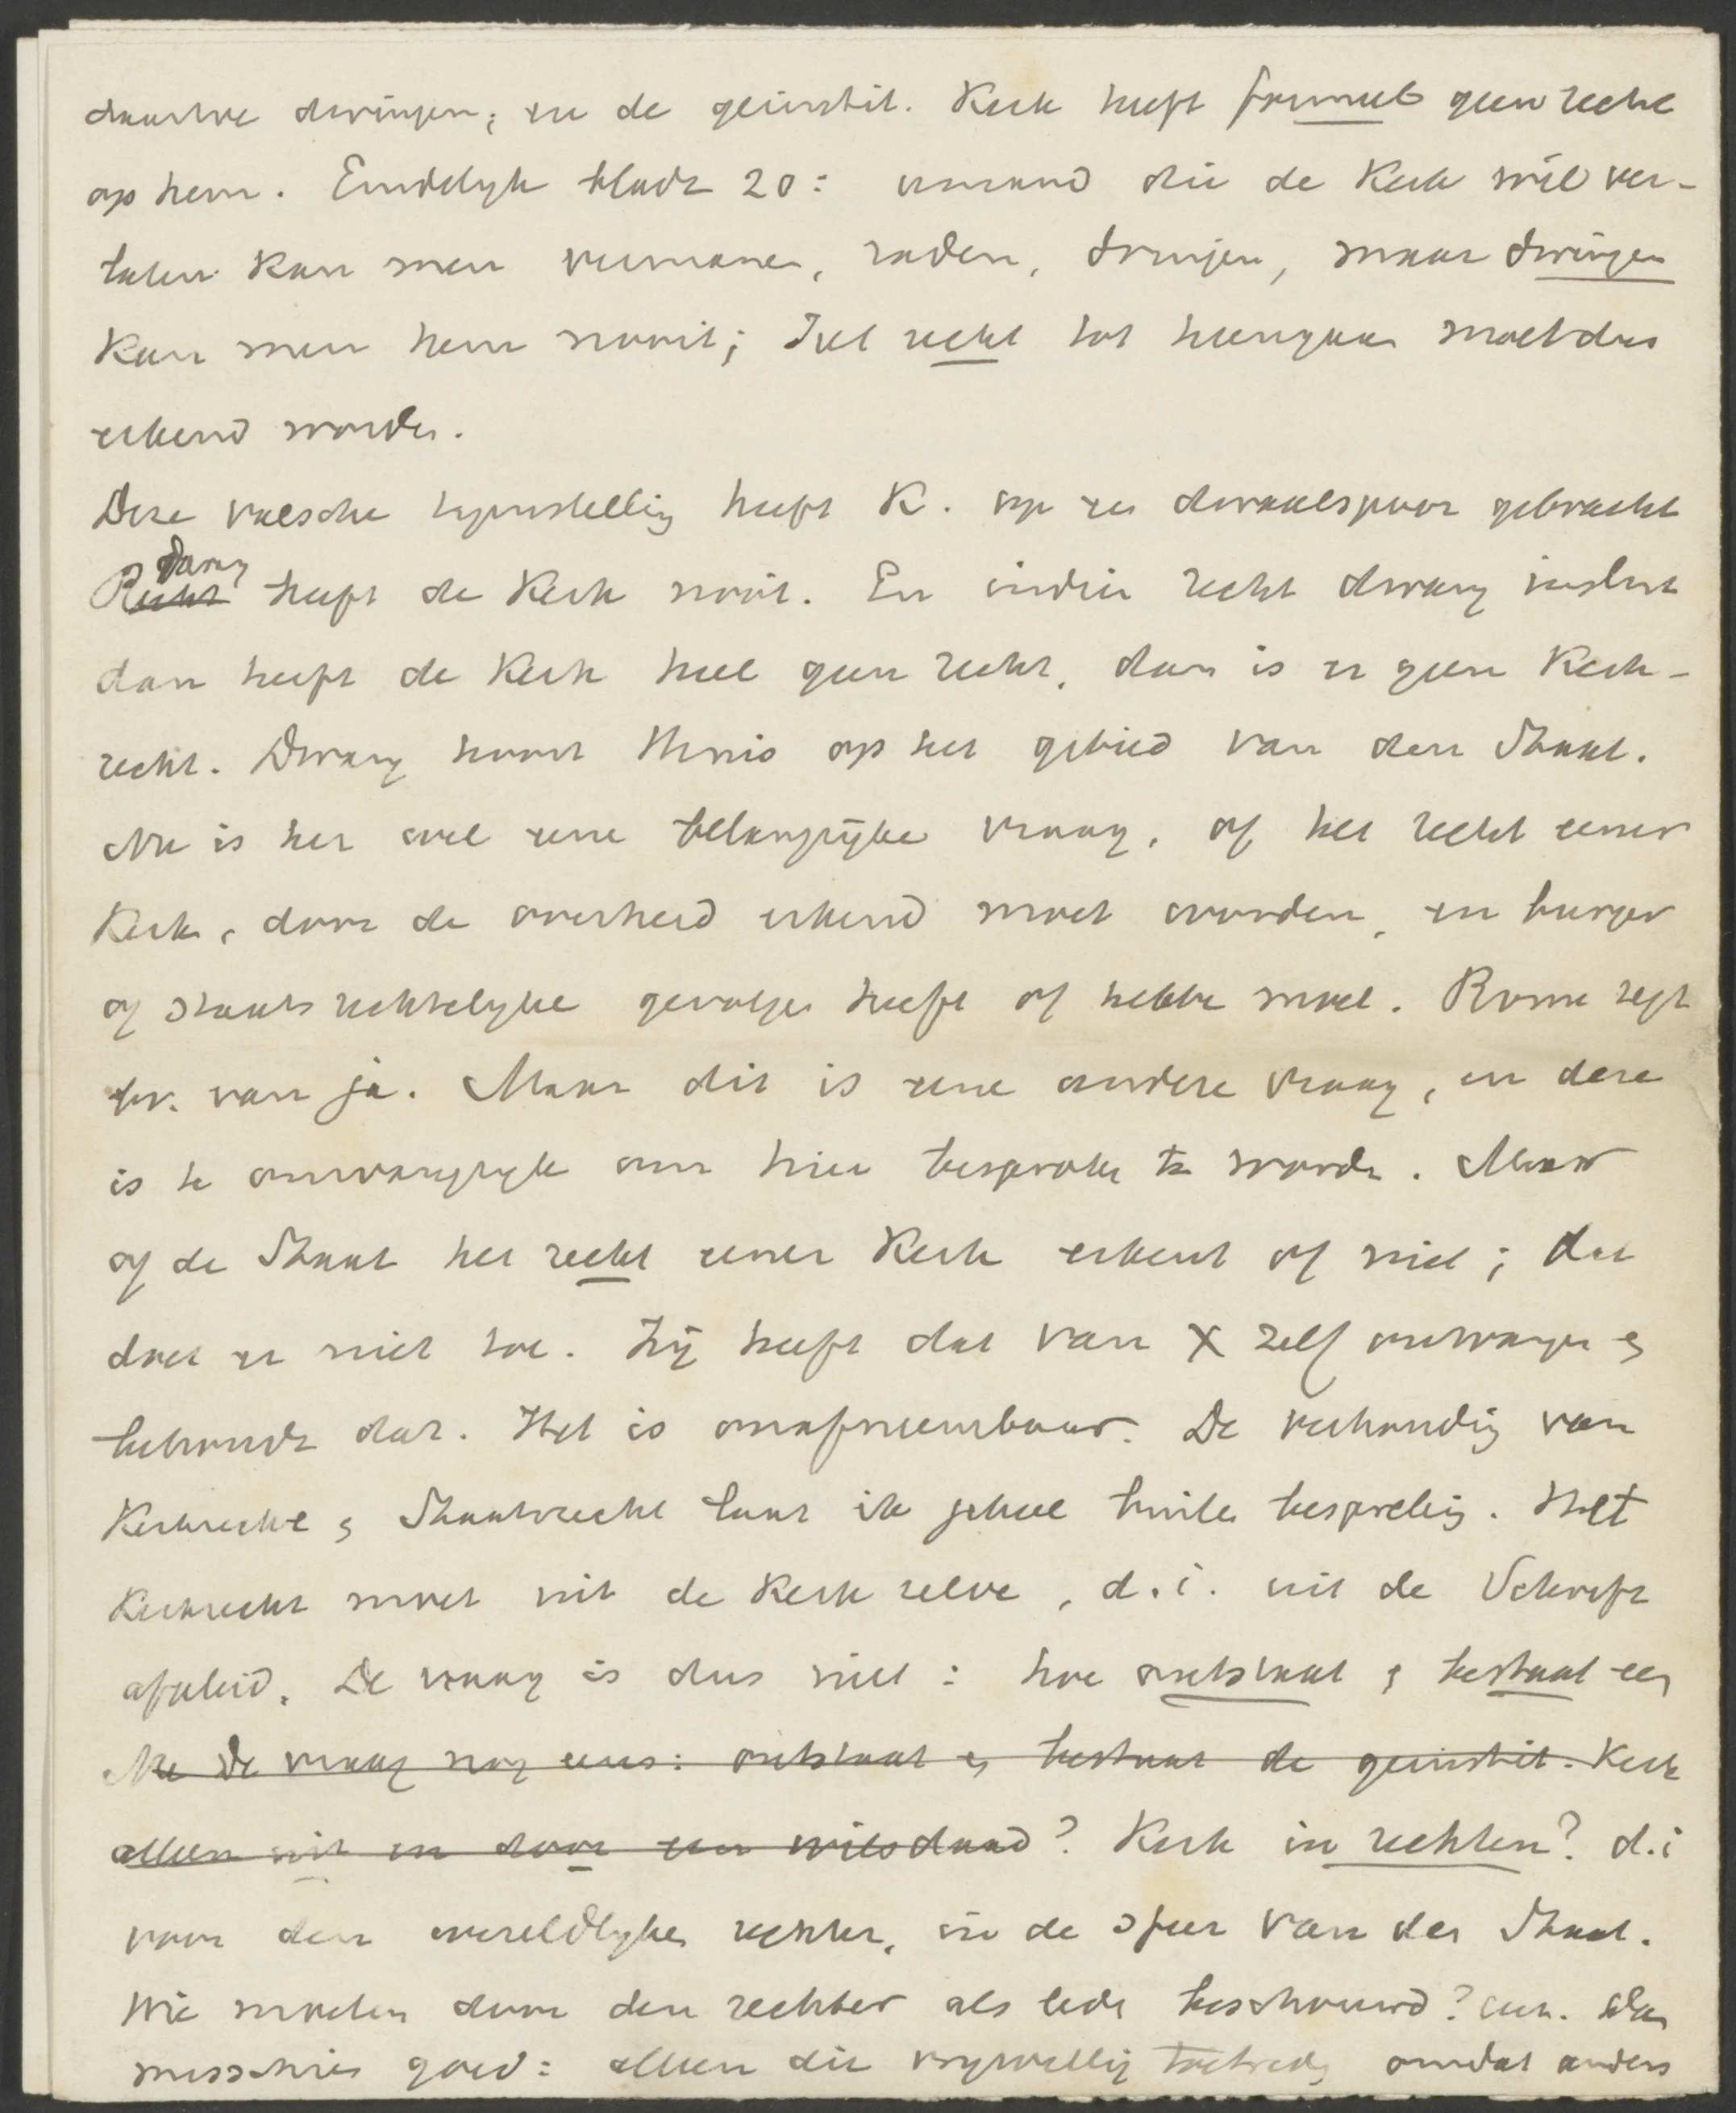 daartoe dwingen; en de geinstit. Kerk heeft formeel geen recht
op hem. Eindelyk bladz 20: iemand die de Kerk wil ver-
laten kan men vermanen, raden, dringen, maar dwingen
kan men hem nooit; Het recht tot heengaan moet dus
erkend worden.
Deze valsche tegenstelling heeft K. op een dwaalspoor gebracht
Recht dwang heeft de Kerk nooit. En indien recht dwang insluit
dan heeft de Kerk heel geen recht, dan is er geen Kerk-
recht. Dwang hoort thuis op het gebied van den Staat.
Nu is het wel eene belangrijke vraag, of het recht eener
Kerk, door de overheid erkend moet worden, en burger
of staatsrechtelyke gevolgen heeft of hebben moet. Rome zegt
bv. van ja. Maar dit is eene andere vraag, en deze
is te omvangryk om hier besproken te worden. Maar
of de Staat het recht eener Kerk erkent of niet; dat
doet er niet toe. Zij heeft dat van X zelf ontvangen en
behoudt dat. Het is onafneembaar. De verhouding van
Kerkrecht en Staatsrecht laat ik geheel buiten bespreking. Het
Kerkrecht moet uit de Kerk zelve, d.i. uit de Schrift
afgeleid. De vraag is dus niet: hoe ontstaat en bestaat een
Nu de vraag nog eens: ontstaat en bestaat de geinstit. Kerk
alleen uit en door een wilsdaad? Kerk in rechten? d.i
voor den wereldlyken rechter, in de sfeer van den Staat.
Wie worden door den rechter als leden beschouwd? enz. Dan
misschien goed: alleen die vrywillig toetreden omdat anders